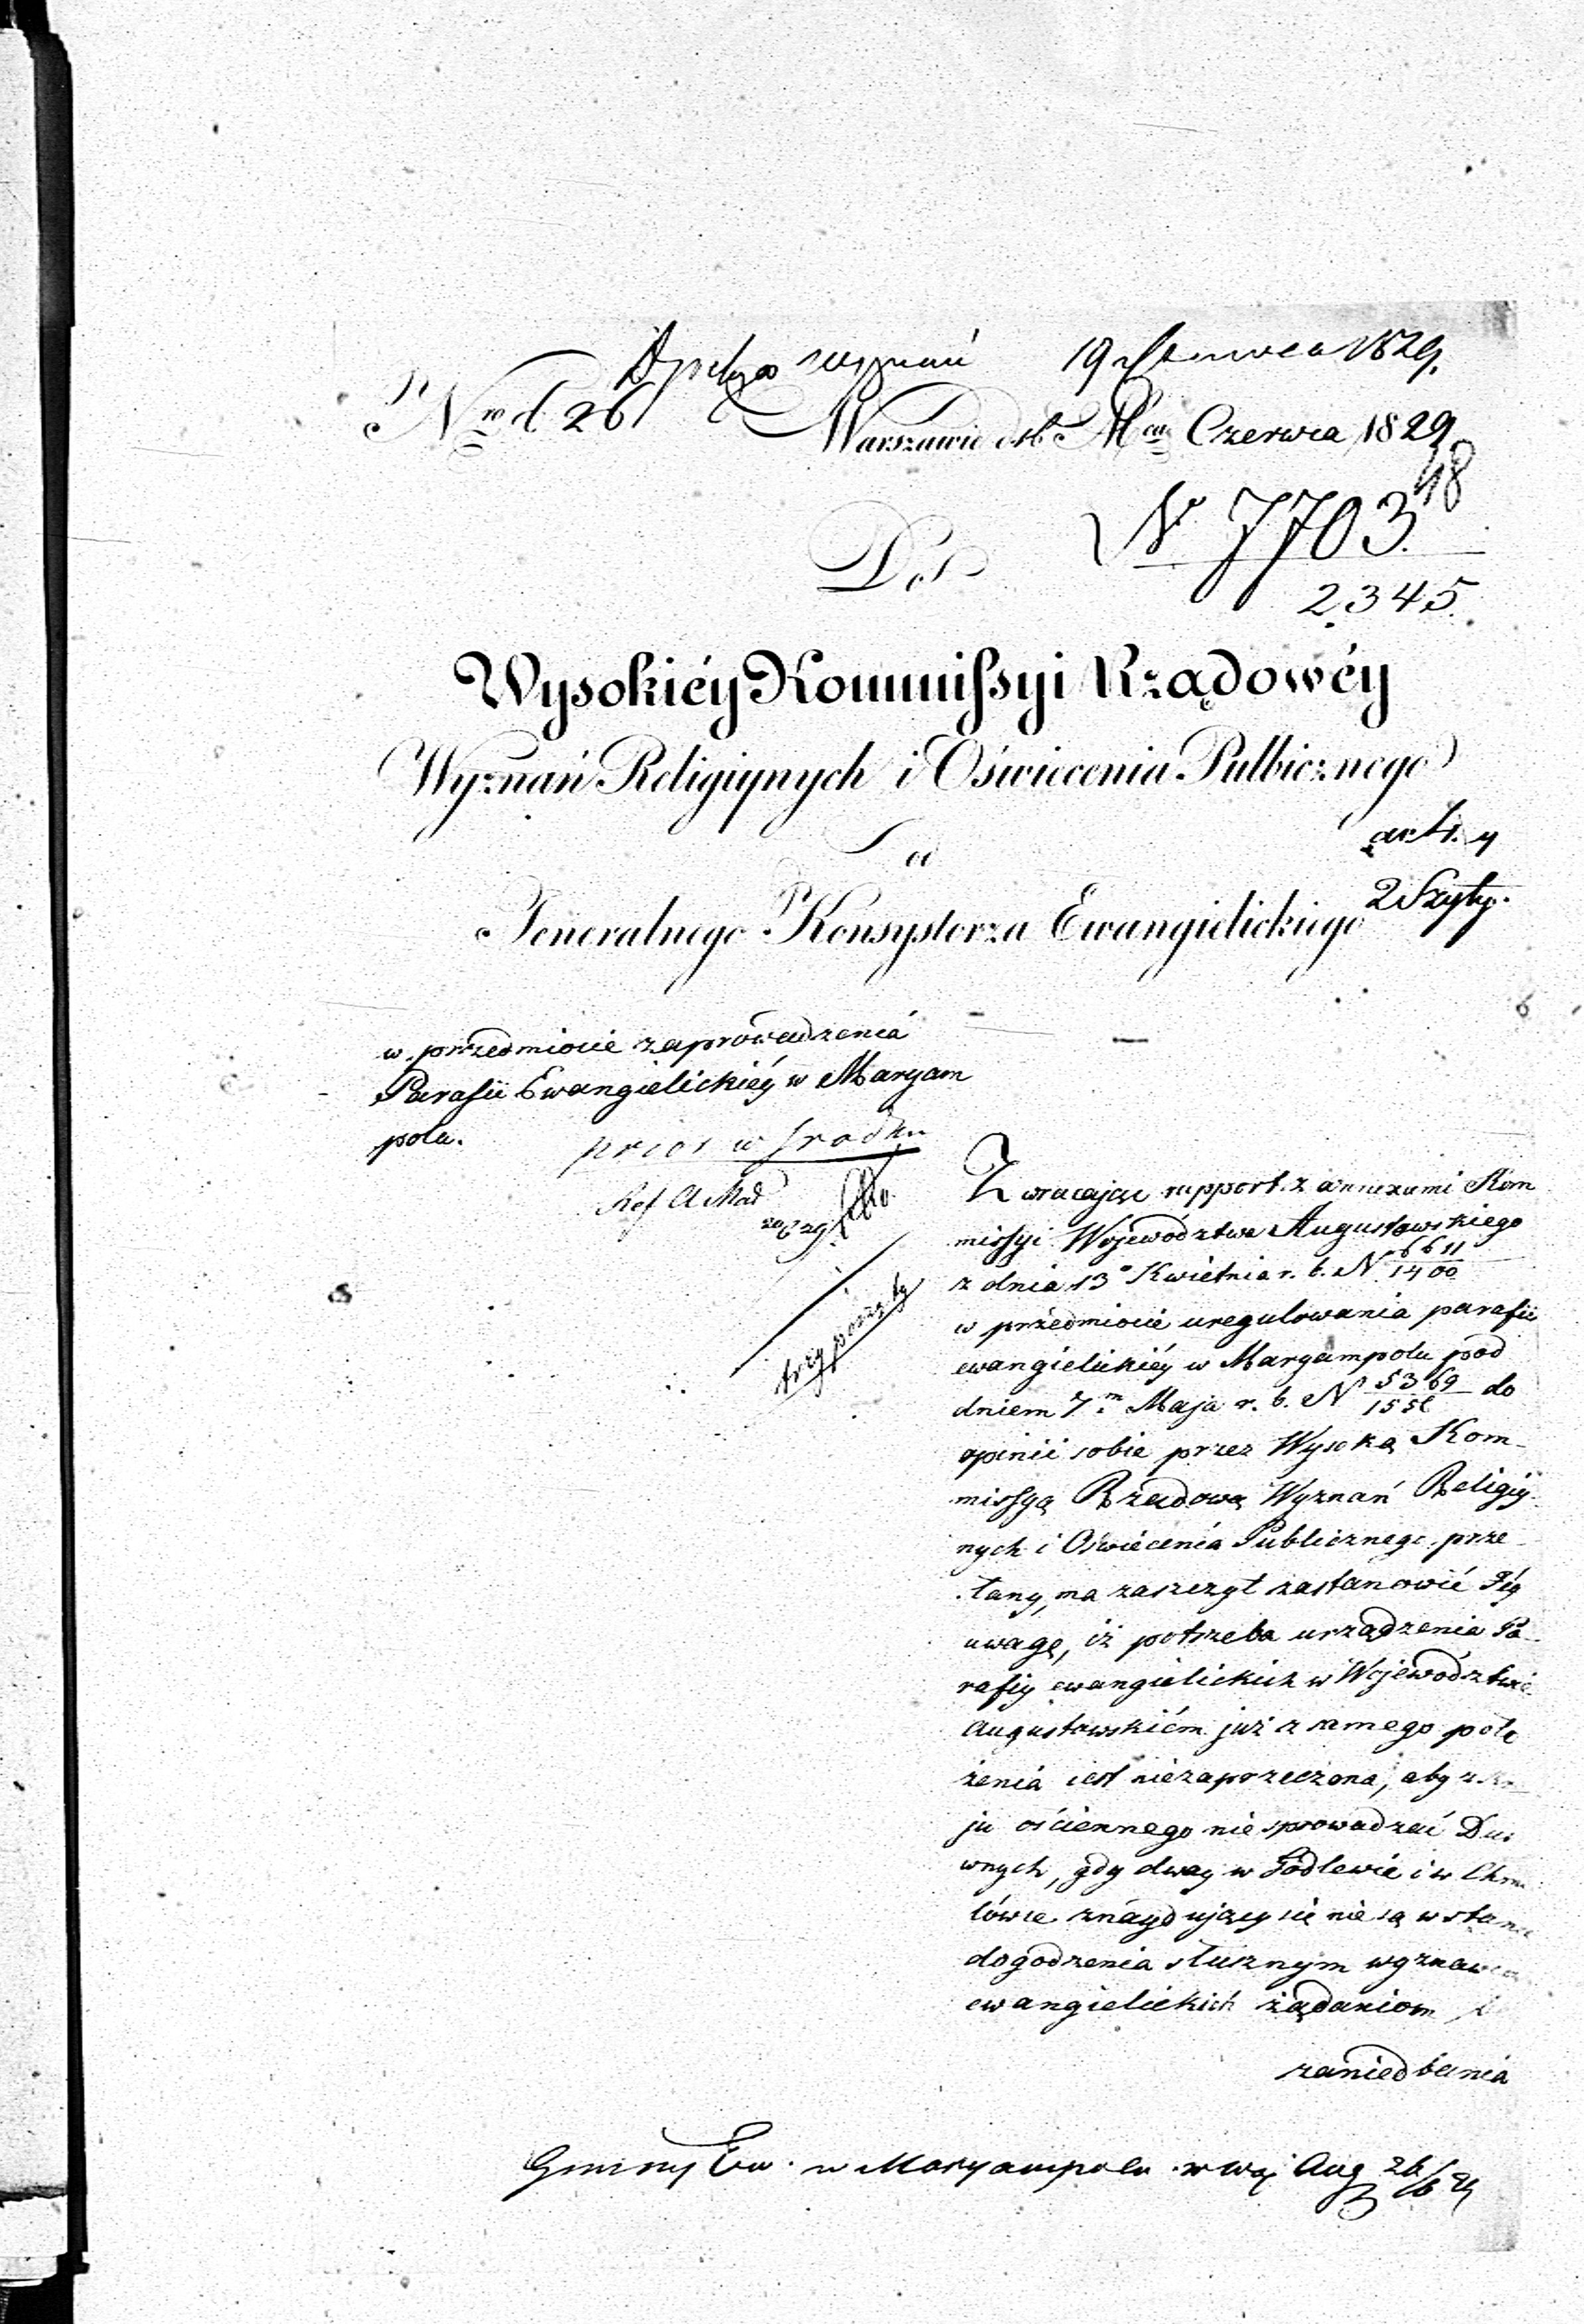 19 Czerwca 1829.
Nro 126
Warszawie d. 16 Mca Czerwca 1829
18
Do
N 7703.
2345.
Wysokiéy Kommissyi Rządowéy
Wyznań Religiynych i Oświecenia Pulbicznego
od
2 Szyty.
Jeneralnego Konsystorza Ewangielickiego
w przedmiocie zaprowadzenia
Parafii Ewangielickiéy w Maryam
polu.
prior w środku
trzy poszyty
Zwracając rapport z annexami Kom
missyi Województwa Augustowskiego
z dnia 13º Kwietnia r. b. N 6611/1400
w przedmiocie uregulowania parafii
ewangielickiéy w Maryampolu pod
dniem 7m Maja r. b. N 5369/1556 do
opinii sobie przez Wysoką Kom-
missyą Rządową Wyznań Religiy
nych i Oświecenia Publicznego prze-
słany, ma zaszczyt zastanowić Jéy
uwagę, iż potrzeba urządzenia Pa-
rafiy ewangielickich w Województwie
Augustowskiém już z samego poło
żenia iest niezaprzeczona, aby z
ju ościennego nie sprowadzać Du
wnych, gdy dway w Godlewie i w
lówce znayduiący się nie są w stanie
dogodzenia słusznym wyznawców
ewangielickich żądaniom, i
zaniedbania
Gminy Ew. w Maryampolu w Woj Aug 26/6 29